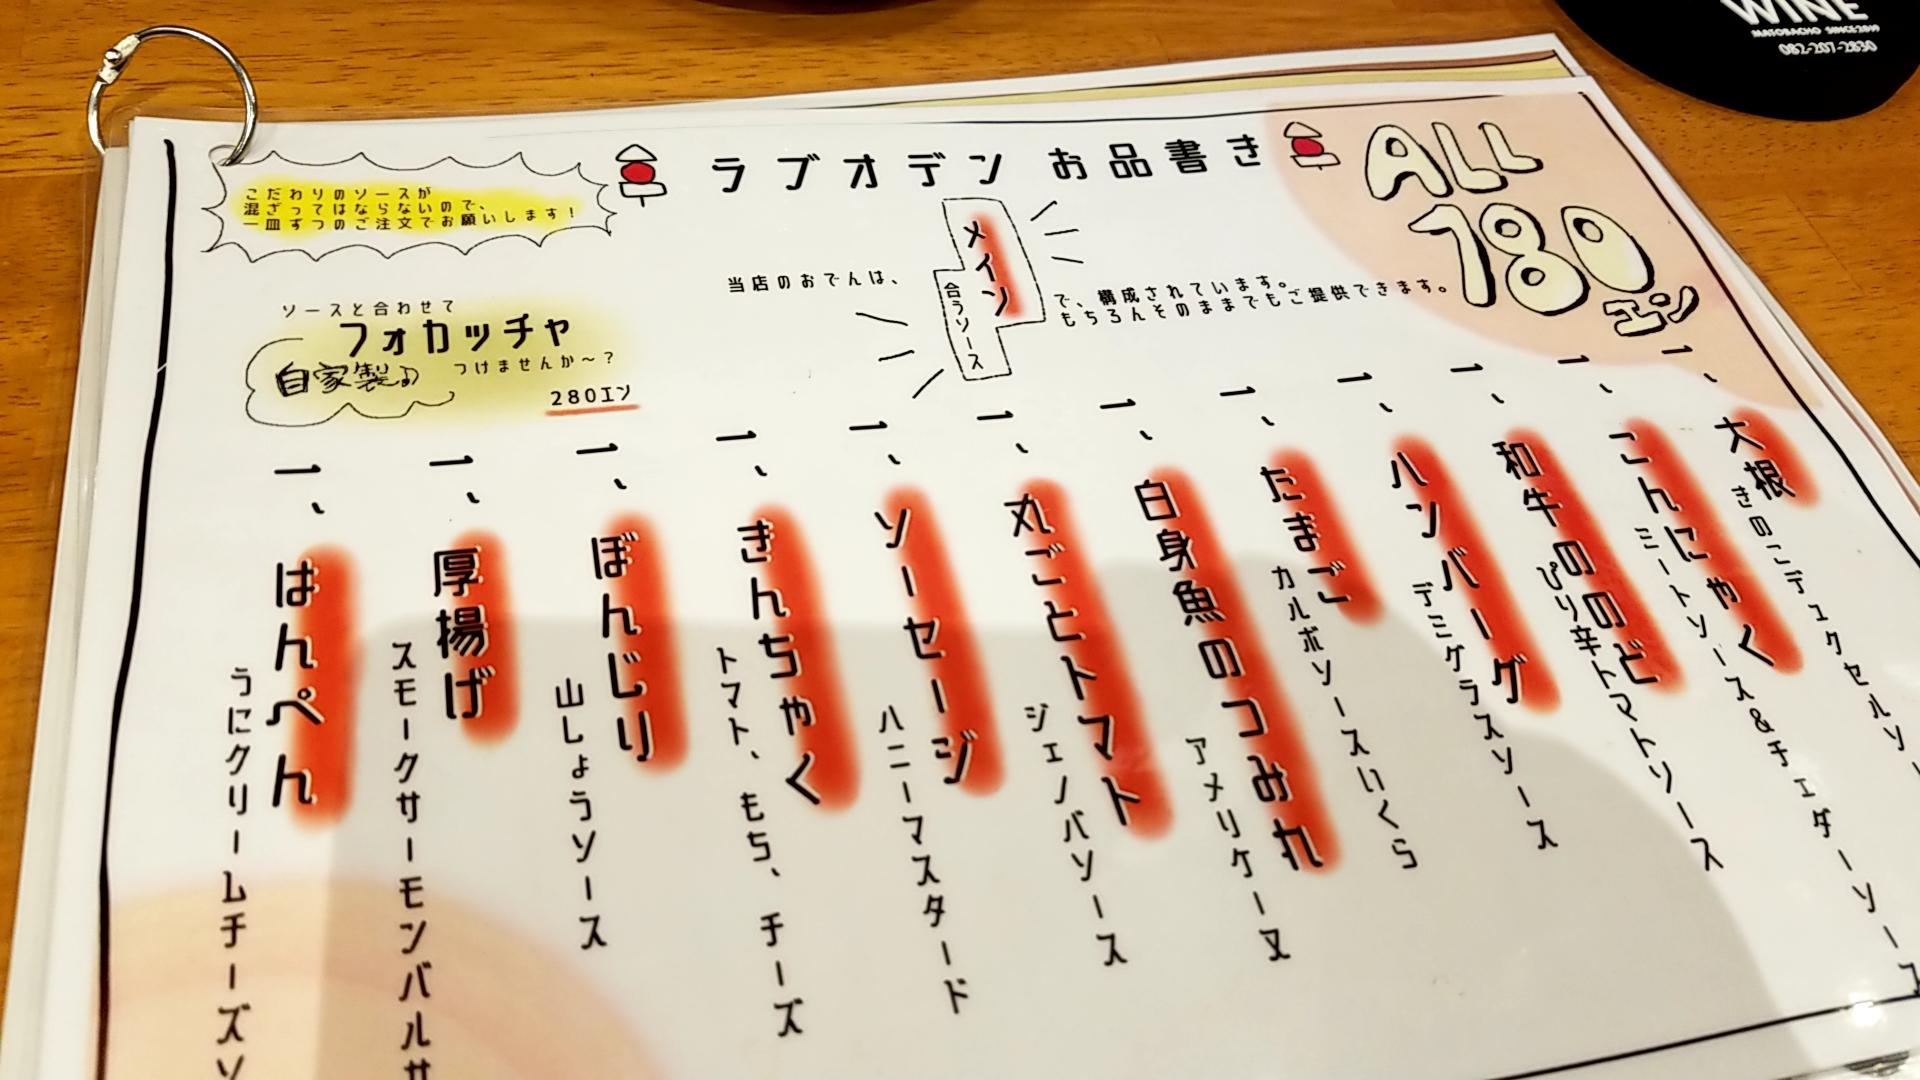 WINE
MATOBACHO SINCE2019
082-207-2850
ラブオデン お品書き
ALL
180
エン
こだわりのソースが
混ざってはならないので、
一皿ずつのご注文でお願いします！
ソースと合わせて
フォカッチャ
自家製♪
つけませんか～？
280エン
当店のおでんは、
メイン
合うソース
で、構成されています。
もちろんそのままでもご提供できます。
一、大根
きのこデュクセルソース
一、こんにゃく
ミートソース&チェダーソース
一、和牛ののど
ぴり辛トマトソース
一、ハンバーグ
デミグラスソース
一、たまご
カルボソースいくら
一、白身魚のつみれ
アメリケーヌ
一、丸ごとトマト
ジェノバソース
一、ソーセージ
ハニーマスタード
一、きんちゃく
トマト、もち、チーズ
一、ぼんじり
山しょうソース
一、厚揚げ
スモークサーモンバルサ
一、はんぺん
うにクリームチーズソ